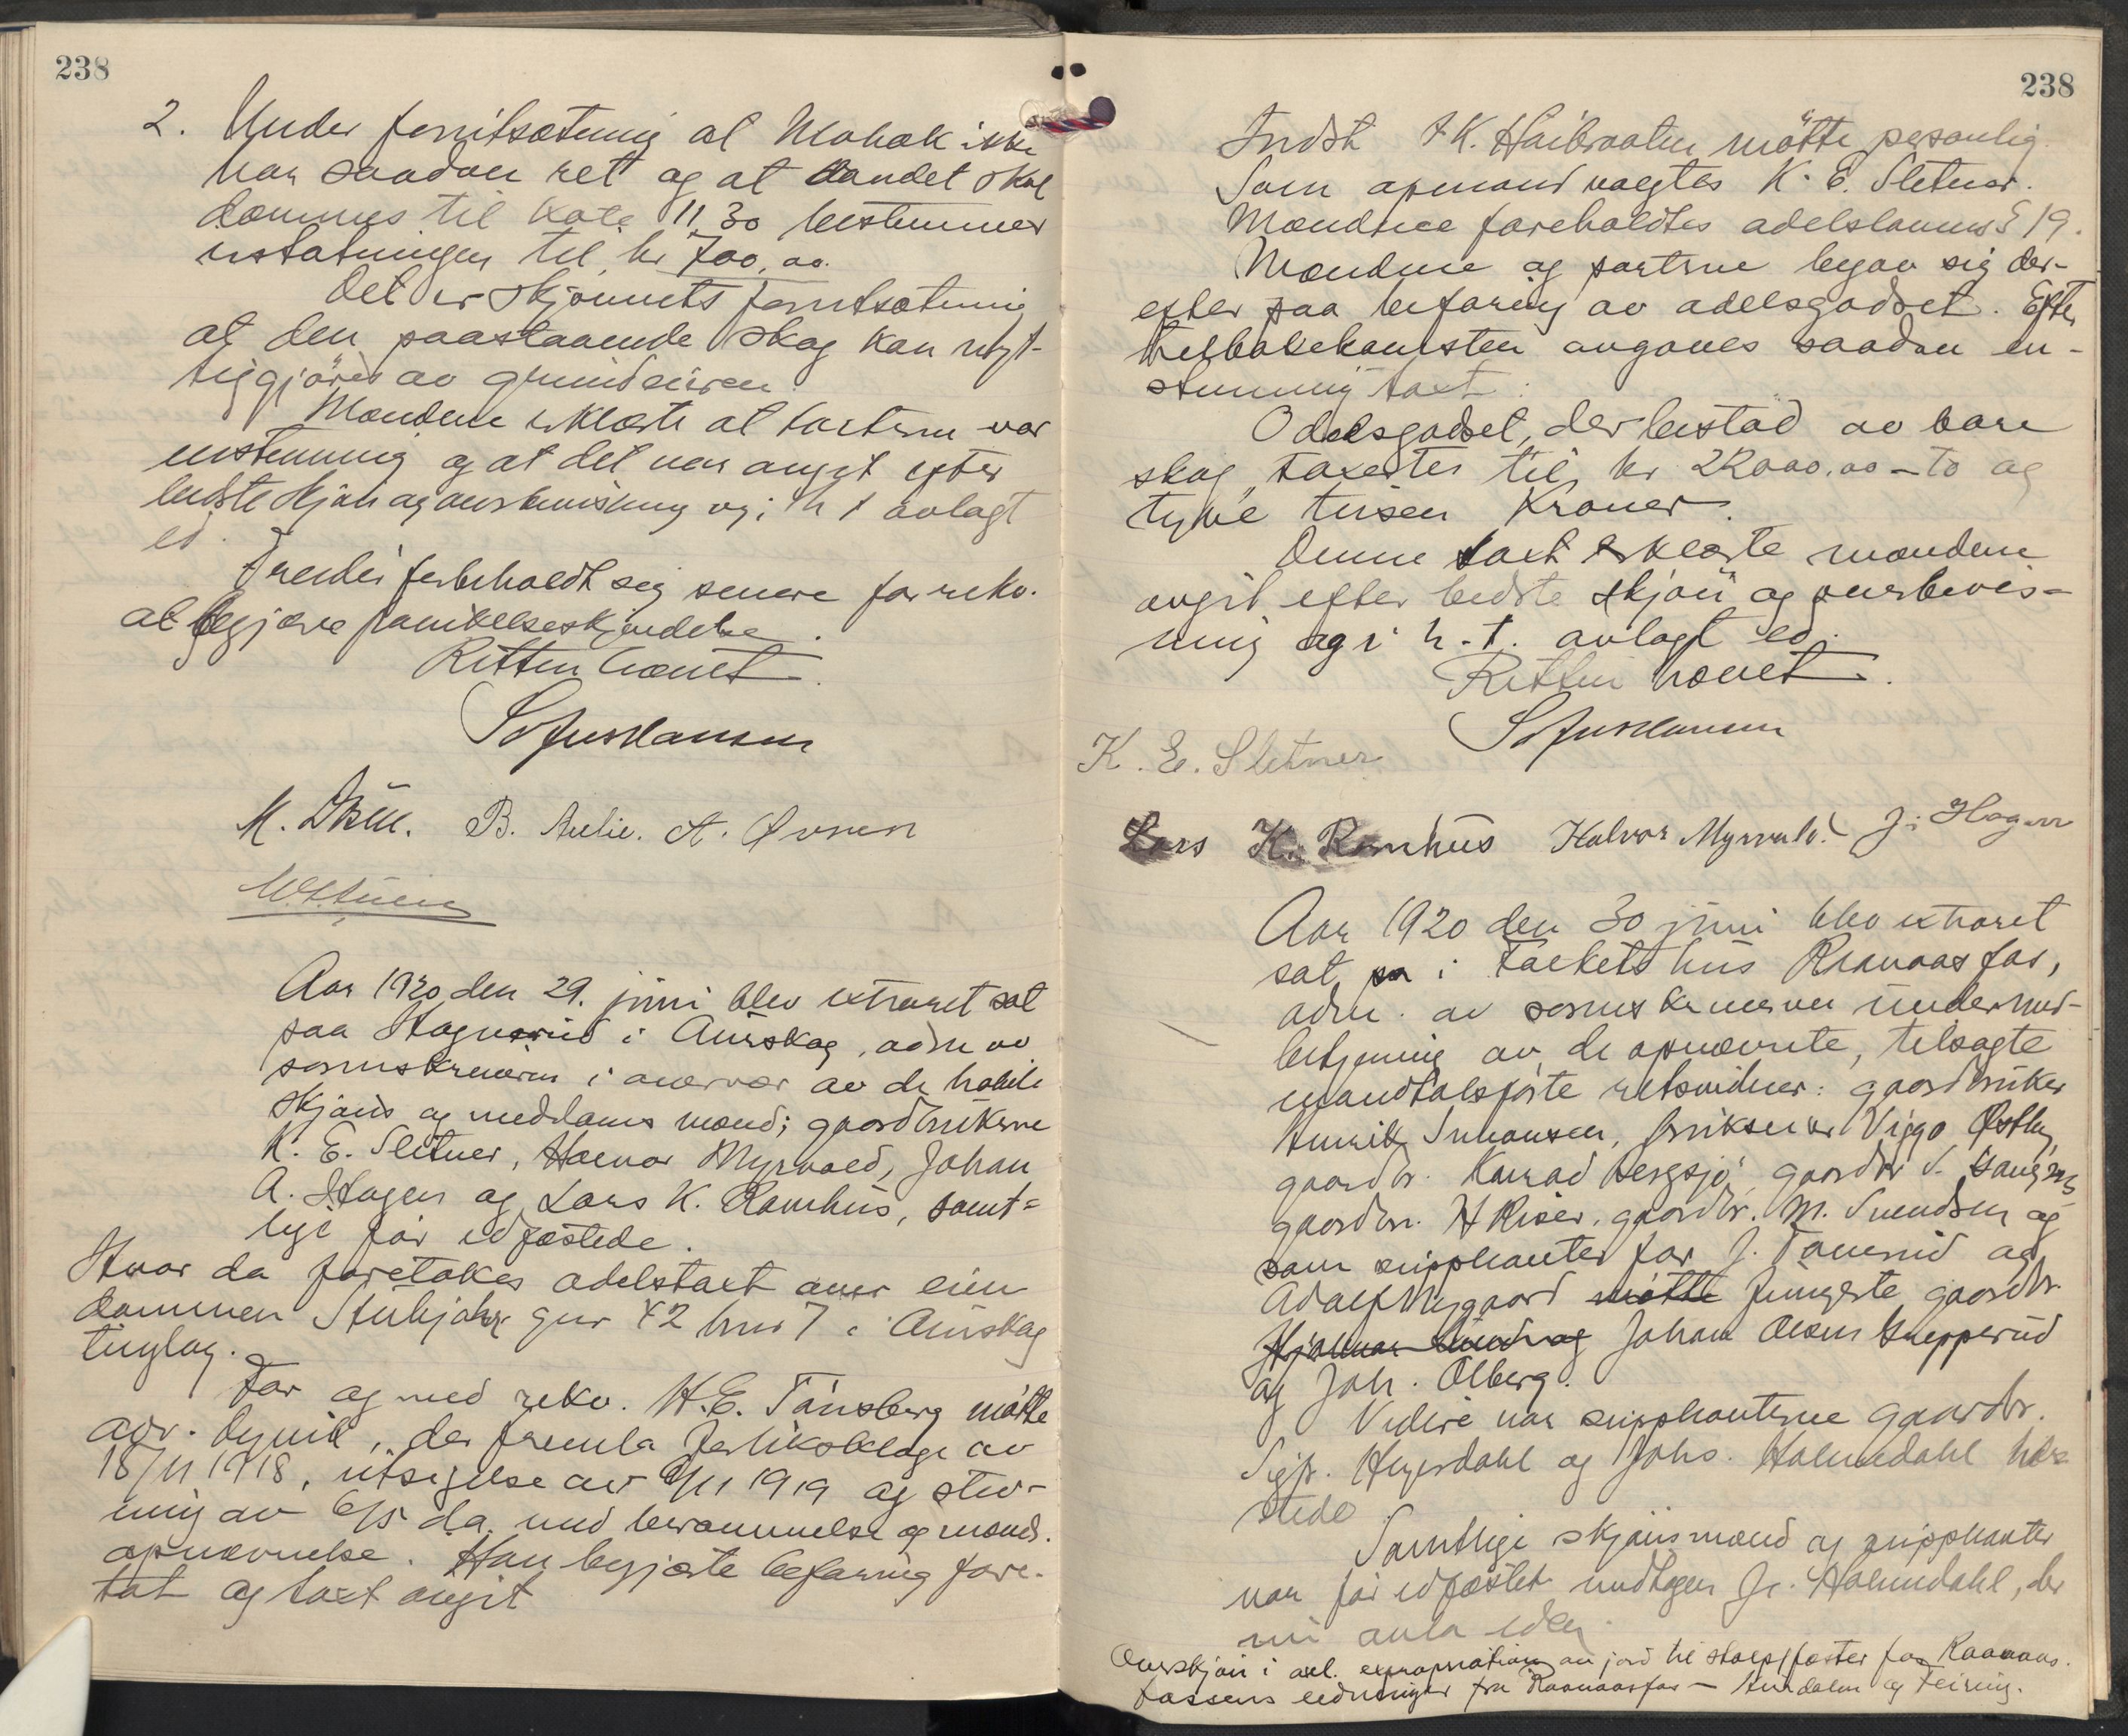 238
2. Under forutsætning at Mohok ikke
har saadan ret og at vandet skal
dæmmes til kote 11,30 bestemmes
erstatningen til kr 700,00.
Det er skjønnets forutsætning
at den paastaaende skog kan nyt-
tiggjøres av grundeieren.
Mændene erklærte at taksterne var
enstemmig og at det var avgit efter
bedste skjøn og overbevisning og i h t avlagt
ed.
forbeholdt sig senere for rekv.
at begjære
Retten hævet.
Sofus Hansen
M. B. Aulie. A.
Aar 1920 den 29. juni blev extraret sat
paa i Aurskog, adm av
sorenskriveren i overvær av de
skjøns og meddoms mænd; gaardbrukerne
K. E. Sletner, Halvor Myrvold, Johan
A. Hagen og Lars K. Ramhus, samt-
lige før edfæstede.
Hvor da foretokes odelstaxt over eien
dommen gnr 42 bnr 7 i Aurskog
tinglag.
For og med rekv. H. E. Tønsberg møtte
adv. der fremla forliksklage av
18/11 1918, utsigelse av /11 1919 og stev-
ning av 6/5 d.a. med berammelse og mænds.
opnævnelse. Han begjærte befaring fore-
tat og taxt avgit
238
Indst K. Haibraaten møtte personlig.
Som opmand valgtes K. E. Sletner.
Mændene foreholdtes odelslovens § 19.
Mændene og parterne begav sig der-
efter paa befaring av odelsgodset. Efter
tilbakekomsten avgaves saadan en-
stemmig taxt:
Odelsgodset, der bestod av bare
skog, taxertes til kr 22000,00 - to og
tyve tusen Kroner.
Denne taxt erklærte mændene
avgit efter bedste skjøn og overbevis-
ning og i h.t. avlagt ed.
Retten hævet.
Sofus Hansen
K. E. Sletner
Lars K. Ramhus Halvor Myrvold J. Hagen
Aar 1920 den 30 juni blev extraret
sat i Folkets hus Raanaasfos,
adm. av sorenskriveren under med-
betjening av de opnævnte, tilsagte
mandtalsførte retsvidner: gaardbruker
Henrik Inhausen, Viggo Østby,
gaardbr. Konrad Bergsjø, gaardbr
gaardbr. H Riser, gaardbr. M. Svendsen og
som suppleanter for J. og
Adolf Nygaard møtte fungerte gaardbr
Hjalmar Johan Olsen Grepperud
og Joh. Ølberg.
Videre var suppleanterne gaardbr.
Sigfr. Heyerdahl og Johs. Holmedahl
stede.
Samtlige skjønsmænd og suppleanter
var før edfæstet undtagen Jo. Holmedahl, der
nu avla eden.
Overskjøn i anl. expropriation av jord til stolpefæster for Raanaas-
fossens ledninger fra Raanaasfos - og Feiring.